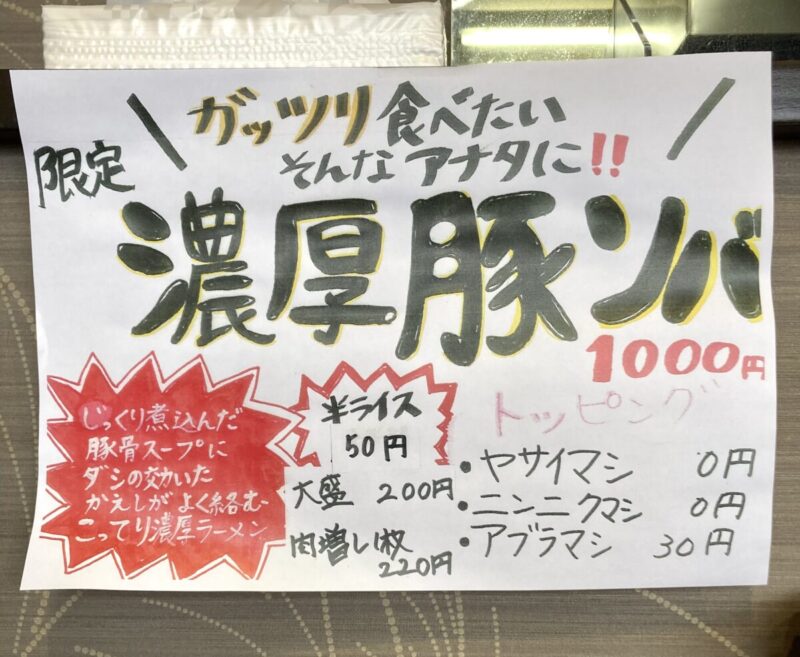 ガッツリ食べたい
そんなアナタに!!
限定
濃厚豚ソバ
1000円
じっくり煮込んだ
豚骨スープに
ダシの効いた
かえしがよく絡む
こってり濃厚ラーメン
半ライス
50円
大盛 200円
肉増し1枚
220円
トッピング
・ヤサイマシ 0円
・ニンニクマシ 0円
・アブラマシ 30円